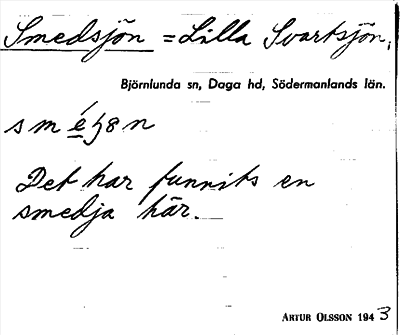 Smedsjön = Lilla Svartsjön,
Björnlunda sn, Daga hd, Södermanlands län.
sméȷ̌8n
Det har funnits en
smedja här.
ARTUR OLSSON 1943